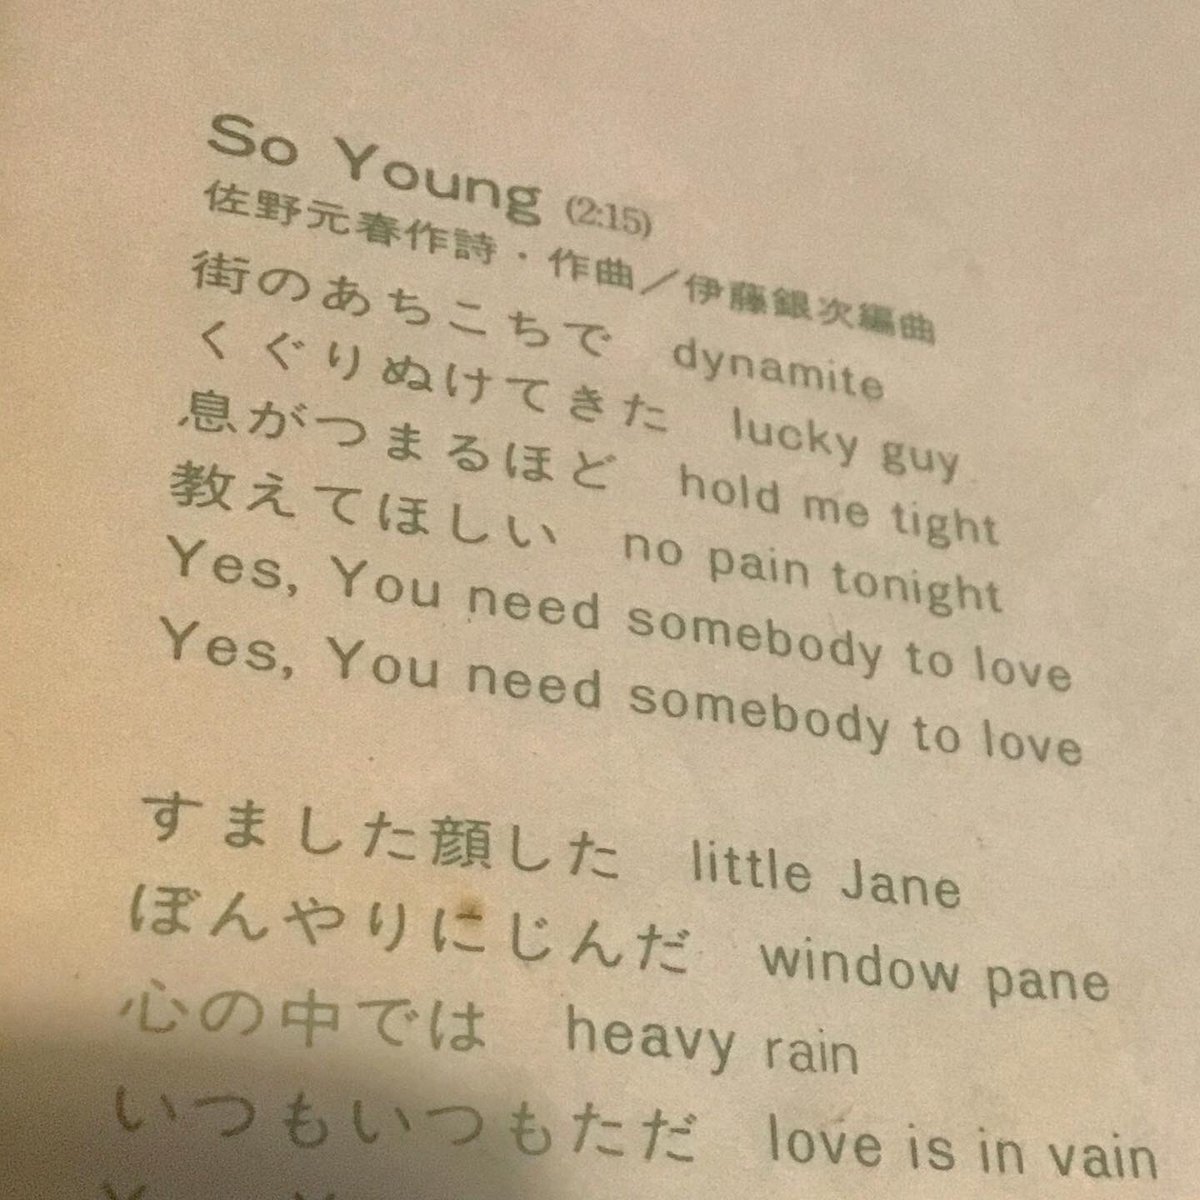 So Young (2:15)
佐野元春作詩・作曲／伊藤銀次編曲
街のあちこちで　dynamite
くぐりぬけてきた　lucky guy
息がつまるほど　hold me tight
教えてほしい　no pain tonight
Yes, You need somebody to love
Yes, You need somebody to love
すました顔した　little Jane
ぼんやりにじんだ　window pane
心の中では　heavy rain
いつもいつもただ　love is in vain